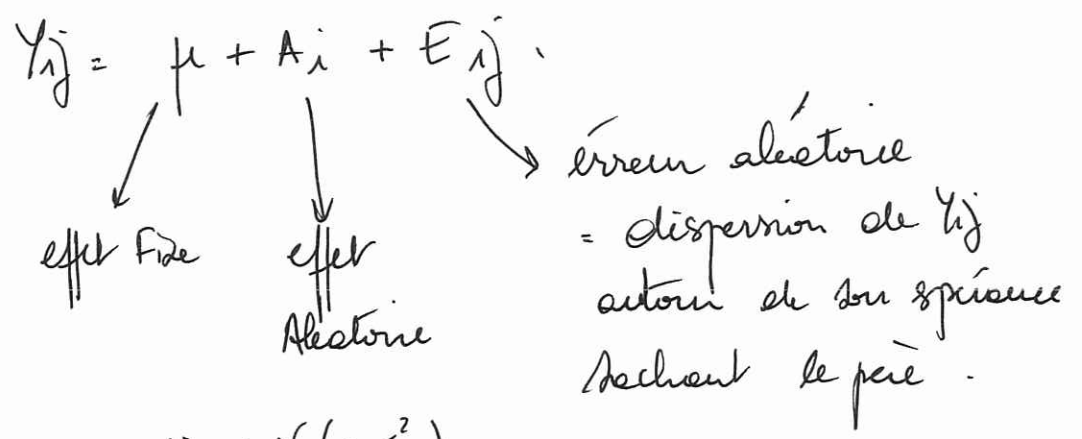 Yij = μ + Ai + Eij.
effet Fixe
effet
Aléatoire
érreur aléatoire
= dispersion de Yij
autour de son espérance
sachant le père.